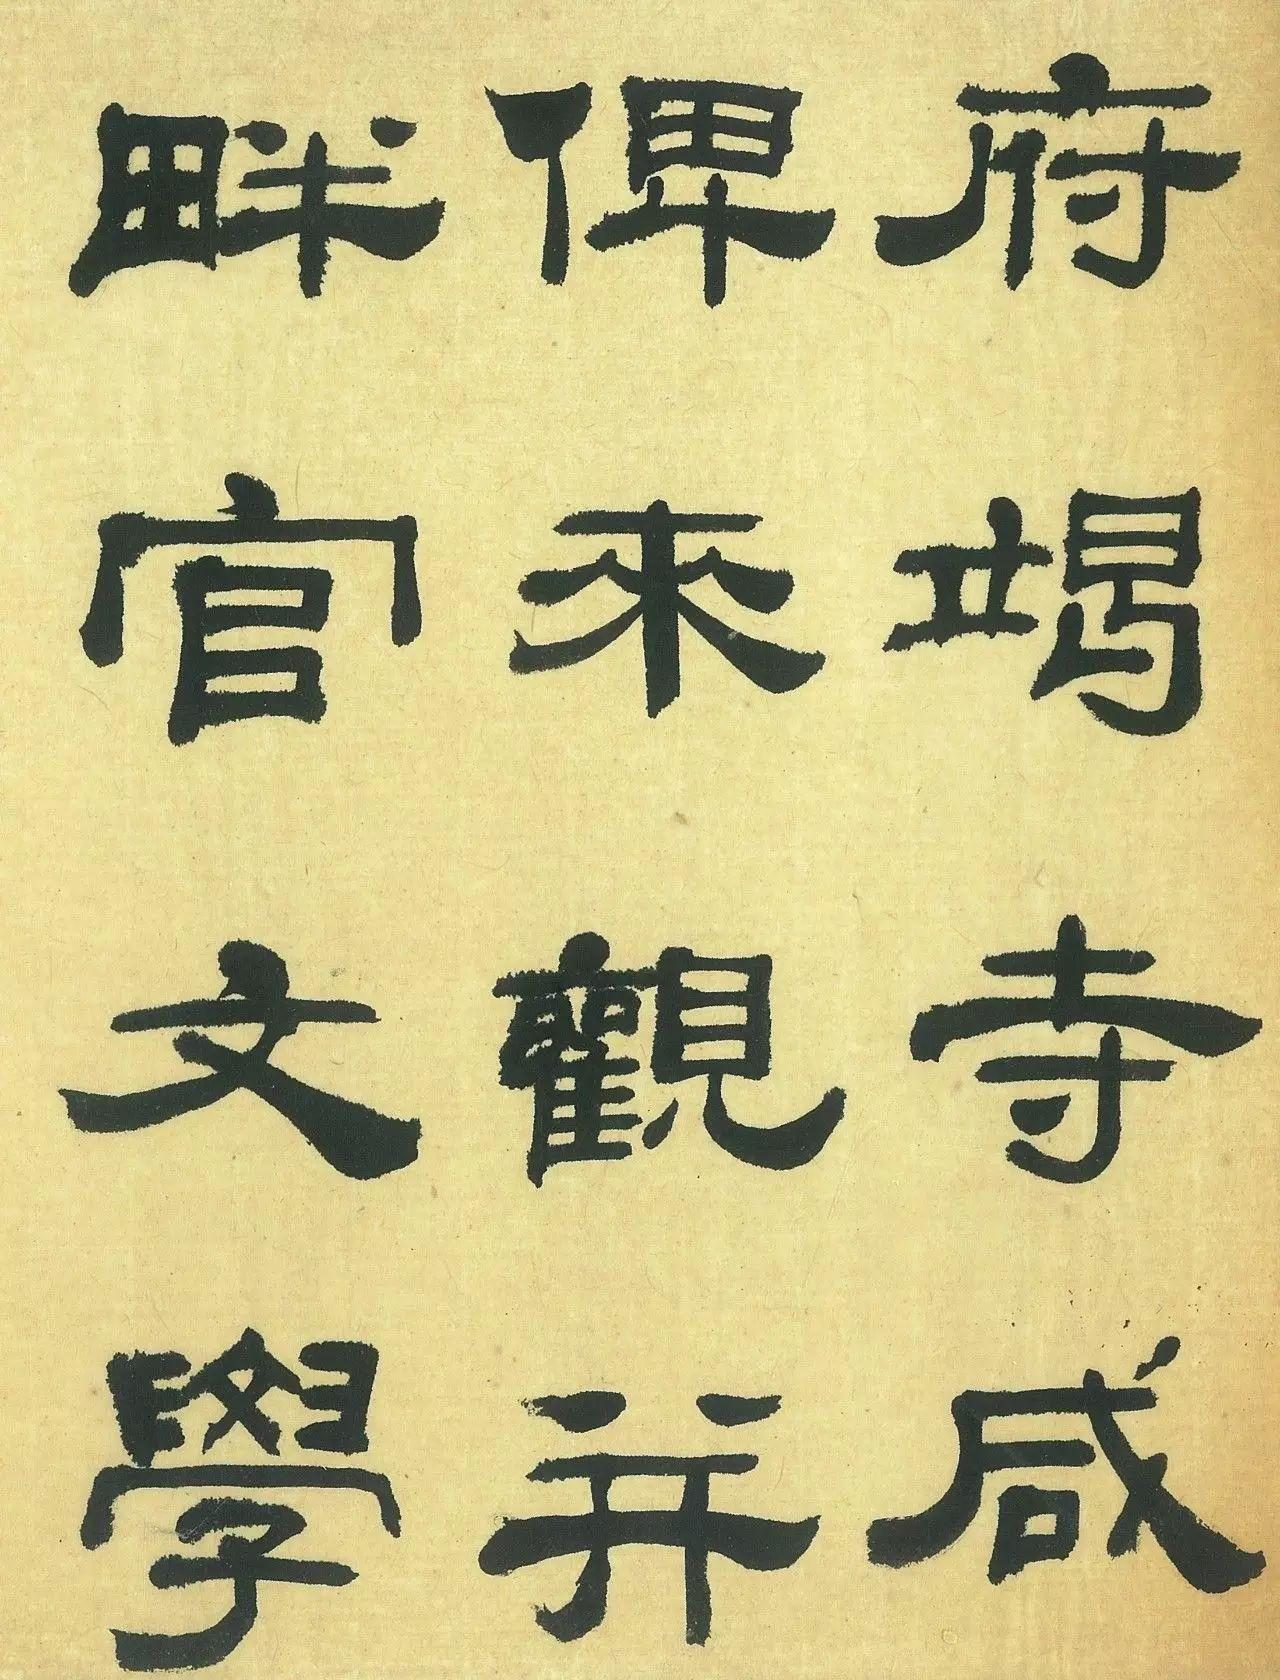 府竭寺咸
俾來觀并
畔官文學